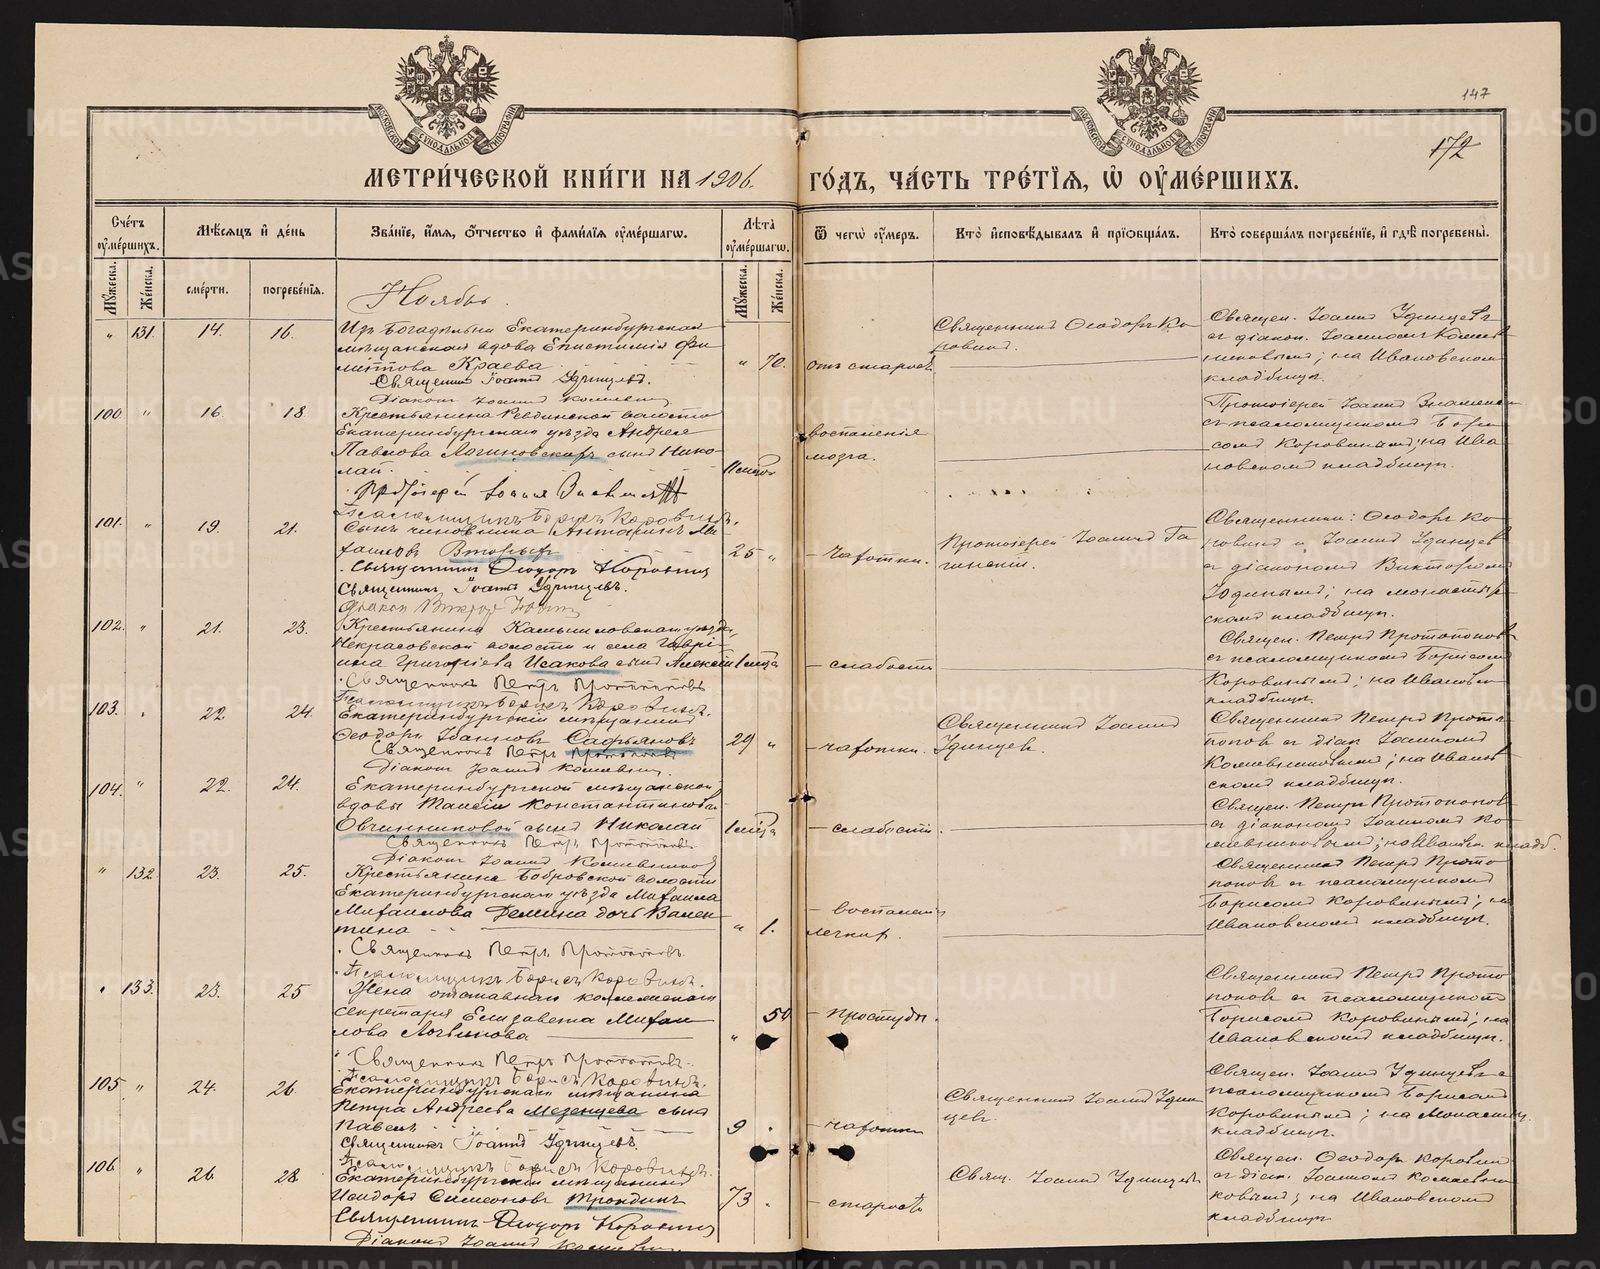 147
172
МОСКОВСКОЙ СѴНОДАЛЬНОЙ ТИПОГРАФІИ
МОСКОВСКОЙ СѴНОДАЛЬНОЙ ТИПОГРАФІИ
МЕТРИ́ЧЕСКОЙ КНИ́ГИ НА 1906 ГО́ДЪ, ЧА́СТЬ ТРЕ́ТІЯ, Ѽ ОУ҆МЕ́РШИХЪ.
Сче́тъ оу҆ме́ршихъ.
Мѣ́сяцъ и҆ де́нь
Зва́ніе, и҆́мя, ѻ҆́тчество и҆ фами́лія оу҆ме́ршагѡ.
Лѣ́та оу҆ме́ршагѡ.
Ѿ чегѡ̀ оу҆́меръ.
Кто̀ и҆сповѣ́дывалъ и҆ прїѡбща́лъ.
Кто̀ соверша́лъ погребе́ніе, и҆ гдѣ̀ погребены̀.
Му́жеска.
Же́нска.
сме́рти.
погребе́нія.
Му́жеска.
Же́нска.
Ноябрь.
" 131. 14. 16.
Изъ Богадѣльни Екатеринбургская
мѣщанская вдова Епистимія Фи
литова Краева
Священникъ Іоаннъ Удинцевъ.
Діаконъ Іоаннъ
" 70.
отъ старост
Священникъ Ѳеодоръ Ко
ровинъ.
Священ. Іоаннъ Удинцевъ
съ діакон. Іоанномъ Кожев
никовымъ; на Ивановском
кладбищѣ.
100. " 16. 18.
Крестьянина Ревдинской волости
Екатеринбургскаго уѣзда Андрея
Павлова Логиновскихъ сынъ Нико-
лай.
Протоіерей Іоаннъ
Псаломщикъ Борисъ Коровинъ.
воспаленія
мозга.
Протоіерей Іоаннъ Знаменск
съ псаломщикомъ Бори
сомъ Коровинымъ; на Ива
новскомъ кладбищѣ.
101. " 19. 21.
Сынъ чиновника Ми
хаиловъ
Священникъ Ѳеодоръ Коровинъ
Священникъ Іоаннъ Удинцевъ.
Діаконъ Викторъ
25 "
- Чахотки.
Протоіерей Іоаннъ
Священники: Ѳеодоръ Ко
ровинъ и Іоаннъ Удинцев
съ діакономъ Викторомъ
на монастыр
скомъ кладбищѣ.
102. " 21. 23.
Крестьянина Камышловскаго уѣзда,
Некрасовской волости и села Гаврі-
ила Григоріева Исакова сынъ Алексѣй
Священникъ Петръ Протопоповъ
Псаломщикъ Борисъ Коровинъ.
1 мѣсца
- слабости
Священ. Петръ Протопопов
съ псаломщикомъ Борисомъ
Коровинымъ; на Ивановск
кладбищѣ.
103. " 22. 24.
Екатеринбургскій мѣщанинъ
Ѳеодоръ Ивановъ Сафьяновъ
Священникъ Петръ Протопоповъ
Діаконъ Іоаннъ
29 "
- чахотки.
Священникъ Іоаннъ
Удинцев.
Священникъ Петръ Прото
попов съ діак Іоанномъ
Кожевниковымъ; на Иванов
скомъ кладбищѣ.
104. " 22. 24.
Екатеринбургской мѣщанской
вдовы Таисіи Константиновой
Овчинниковой сынъ Николай
Священникъ Петръ Протопоповъ.
Діаконъ Іоаннъ Кожевниковъ
1 мѣсца
- слабости.
Священ. Петръ Протопопов
съ діакономъ Іоанномъ Ко
жевниковымъ; на Ивановск. кладб.
" 132. 23. 25.
Крестьянина Бобровской волости
Екатеринбургскаго уѣзда Михаила
Михаилова Демина дочь Вален-
тина
Священникъ Петръ Протопоповъ.
Псаломщикъ Борисъ Коровинъ.
" 1.
- воспаленія
легких.
Священникъ Петръ Прото
поповъ съ псаломщикомъ
Борисомъ Коровинымъ; на
Ивановскомъ кладбищѣ.
" 133. 23. 25
Жена отставнаго коллежскаго
секретаря Елизавета Михаи
лова Логинова
Священникъ Петръ Протопоповъ.
Псаломщикъ Борисъ Коровинъ.
" 50
- простуды.
Священникъ Петръ Прото
поповъ съ псаломщикомъ
Борисомъ Коровинымъ; на
Ивановскомъ кладбищѣ.
105. " 24. 26.
Екатеринбургскаго мѣщанина
Петра Андреева Мезенцева сынъ
Павелъ
Священникъ Іоаннъ Удинцевъ.
Псаломщикъ Борисъ Коровинъ.
9 "
- чахотки
Священникъ Іоаннъ Удин
цевъ.
Священ. Іоаннъ Удинцевъ съ
псаломщикомъ Борисомъ
Коровинымъ; на Монастыр.
кладбищѣ.
106. " 26. 28
Екатеринбургскій мѣщанинъ
Исидоръ Симеоновъ Трондинъ
Священникъ Ѳеодоръ Коровинъ
Діаконъ Іоаннъ
73 "
- старости
Свящ. Іоаннъ Удинцевъ
Священ. Ѳеодоръ Коровин
съ діак. Іоанномъ Кожевни
ковымъ; на Ивановскомъ
кладбищѣ
METRIKI.GASO-URAL.RU